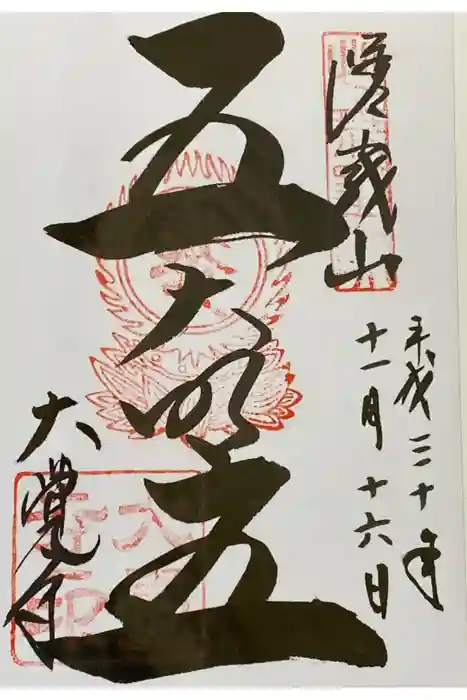 嵯峨山
平成三十年
十一月十六日
五大明王
大覺寺